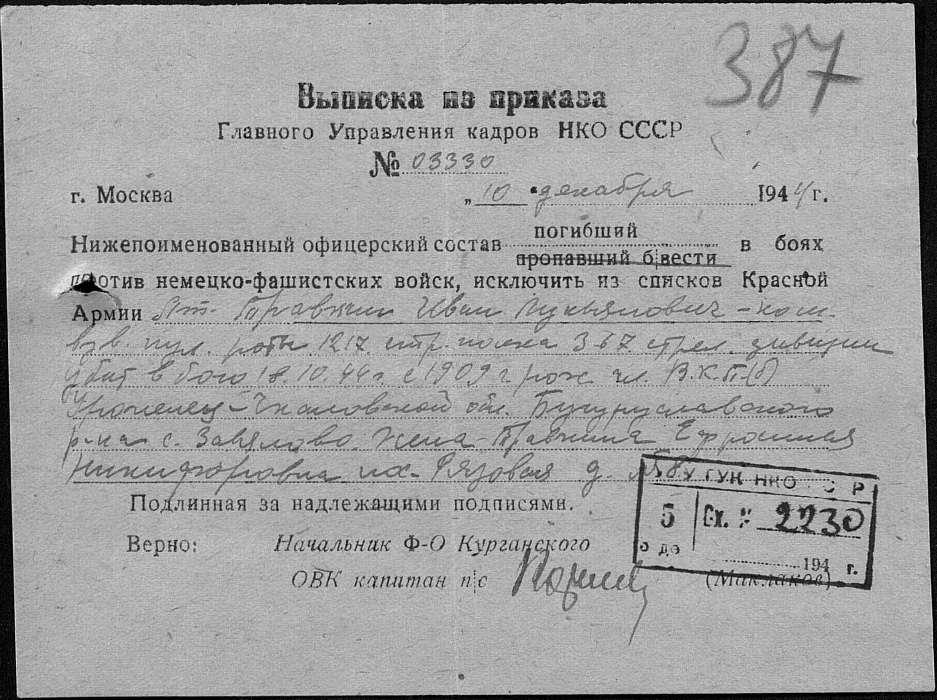 387
Выписка из приказа
Главного Управления кадров НКО СССР
№ 03330
г. Москва „ 10 " декабря 1944 г.
Нижепоименованный офицерский состав погибший в боях
пропавший б/вести
против немецко-фашистских войск, исключить из списков Красной
Армии Лт. Правжин Иван Лукьянович - ком.
взв. пул. роты 1217 стр. полка 367 стрел. дивизии
убит в бою 18.10.44 г. с 1909 г. рож. чл. В.К.П.(б)
Уроженец - Чкаловской обл. Бугурусланского
р-на с. Завялово. Жена - Правжина Ефросинья
Никифоровна
д. № 8
Подлинная за надлежащими подписями.
Верно: Начальник Ф-О Курганского
ОВК капитан п/с (Маклаков)
У ГУК НКО СССР
5 Вх. № 2230
отдэ 194 г.